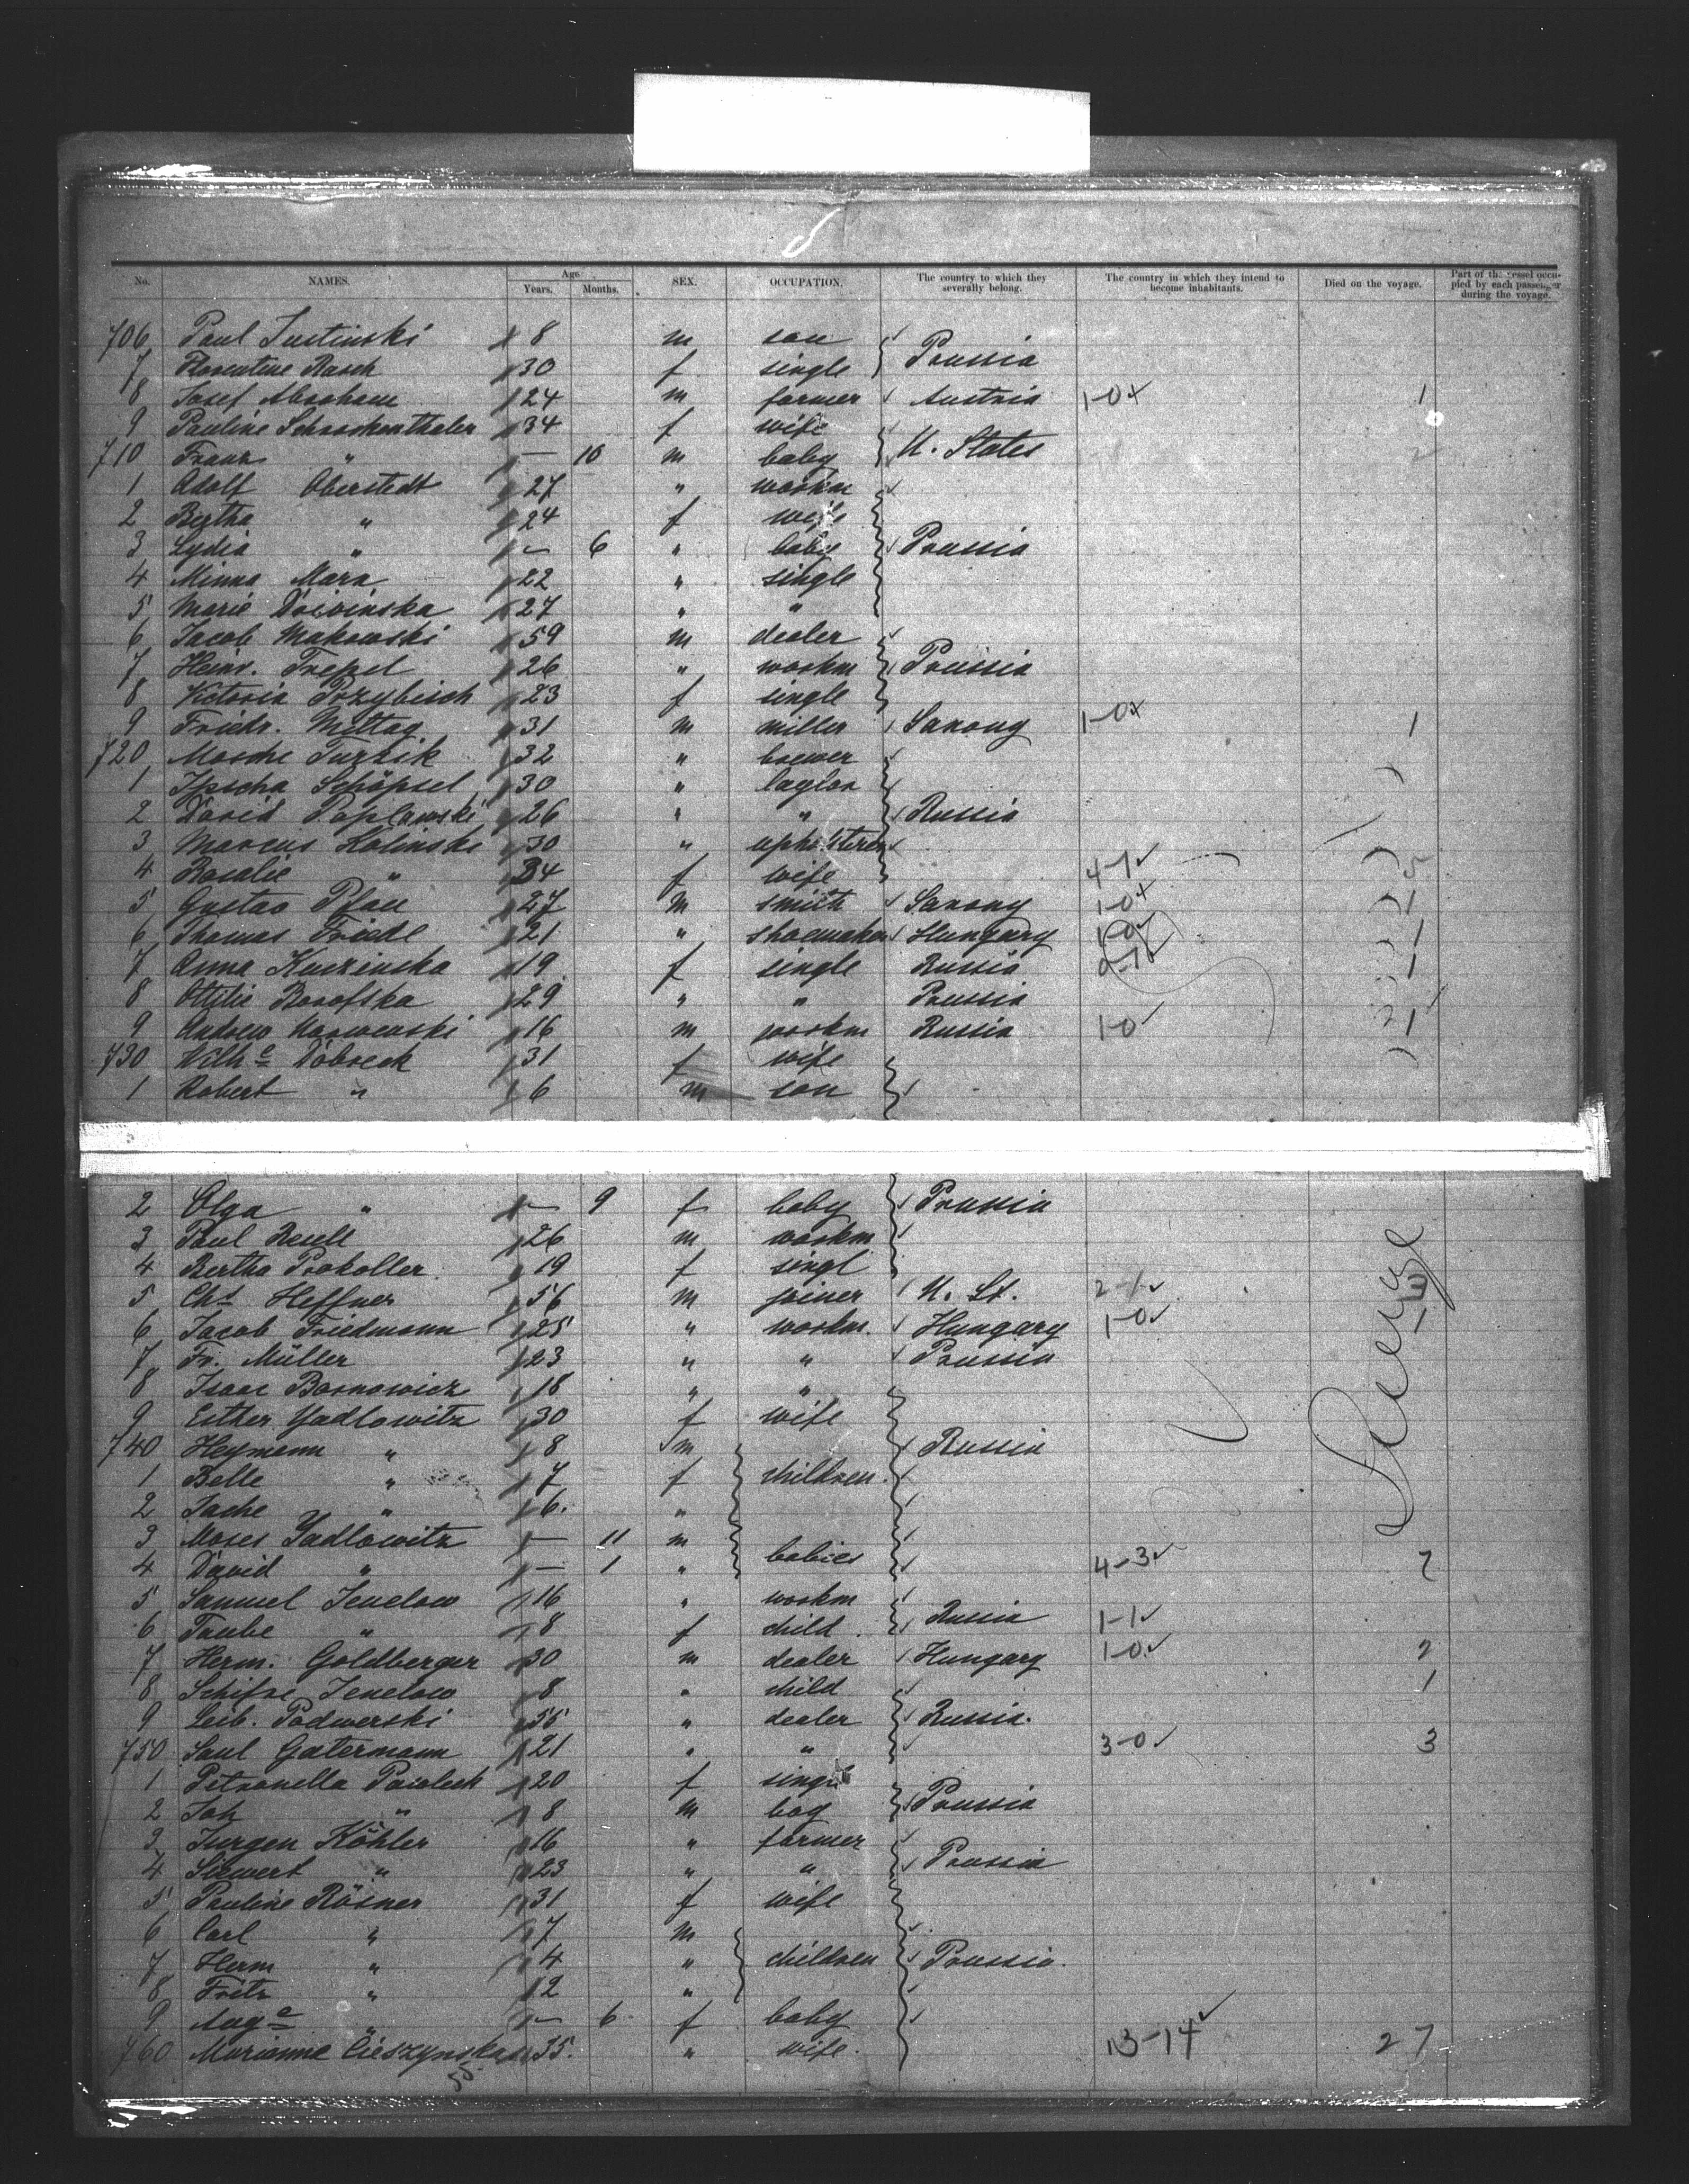 No. NAMES. Age Years. Months. SEX. OCCUPATION. The country to which they severally belong. The country in which they intend to become inhabitants. Died on the voyage. Part of the vessel occupied by each passenger during the voyage.
706 Paul Justinski 8 m son
7 Florentine Rasch 30 f single Prussia
8 Josef Abraham 24 m farmer Austria 1-0 1
9 Pauline Schrockenthaler 34 f wife
710 Franz " — 10 m baby U. States
1 Adolf Oberstedt 27 " workm
2 Bertha " 24 f wife
3 Lydia " — 6 " baby Prussia
4 Minna Marx 22 " single
5 Marie 27 " "
6 Jacob Makowski 59 m dealer
7 Heinr. Trepel 26 " workm Prussia
8 Victoria Przybisch 23 f single
9 Friedr. Mittag 31 m miller Saxony 1-0 1
720 Mosche Turzik 32 " brewer
1 Schöpsel 30 " taylor
2 David Poplawski 26 " " Russia
3 Marcus Kolinski 30 " upholsterer
4 Rosalie " 34 f wife 4-1 5
5 Gustav Pfau 27 m smith Saxony 1-0 1
6 Thomas Friedl 21 " shoemaker Hungary 1-0 1
7 Anna Kuczinska 19 f single Russia 0-1 1
8 Ottilie Borofska 29 " " Prussia
9 Andrew 16 m workm Russia 1-0 1
730 Wilhe Dobreck 31 f wife
1 Robert " 6 m son
2 Olga " — 9 f baby Prussia
3 Paul 26 m workm
4 Bertha Prokoller 19 f singl
5 Chs Heffner 56 m joiner U. St. 2-1 3
6 Jacob Friedmann 25 " workm. Hungary 1-0 1
7 Fr. Müller 23 " " Prussia
8 Isaac Barnowicz 18 " "
9 Esther Yadlowitz 30 f wife
740 Heymann " 8 m Russia
1 Belle " 7 f children
2 Jache " 6. "
3 Moses Yadlowitz — 11 m
4 David " — 1 " babies 4-3 7
5 Samuel Jenelow 16 " workm
6 Taube " 8 f child Russia 1-1
7 Herm. Goldberger 30 m dealer Hungary 1-0 2
8 Schifre Jenelow 8 " child 1
9 Leib. Podwerski 55 " dealer Russia.
750 Saul Gatermann 21 " " 3-0 3
1 Petronella Pawleck 20 f singl
2 Joh " 8 m boy Prussia
3 Jurgen Köhler 16 " farmer
4 Siewert " 23 " " Prussia
5 Pauline Rösner 31 f wife
6 Carl " 7 m
7 Herm " 4 " children Prussia.
8 Fritz " 2 "
9 Auge " — 6 f baby
760 Marianna Cieszynska 35. " wife. 13-14 27
55